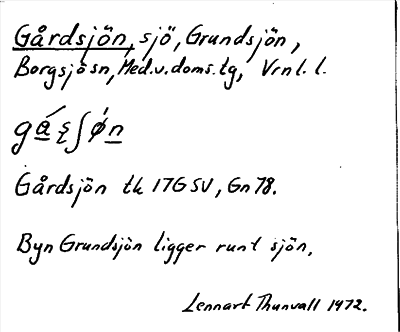 Gårdsjön, sjö, Grundsjön,
Borgsjö sn, Med.v.doms.tg, Vrnl. l.
Gårdsjön tk 17G SV, Gn 78.
Byn Grundsjön ligger runt sjön.
Lennart Thunvall 1972.